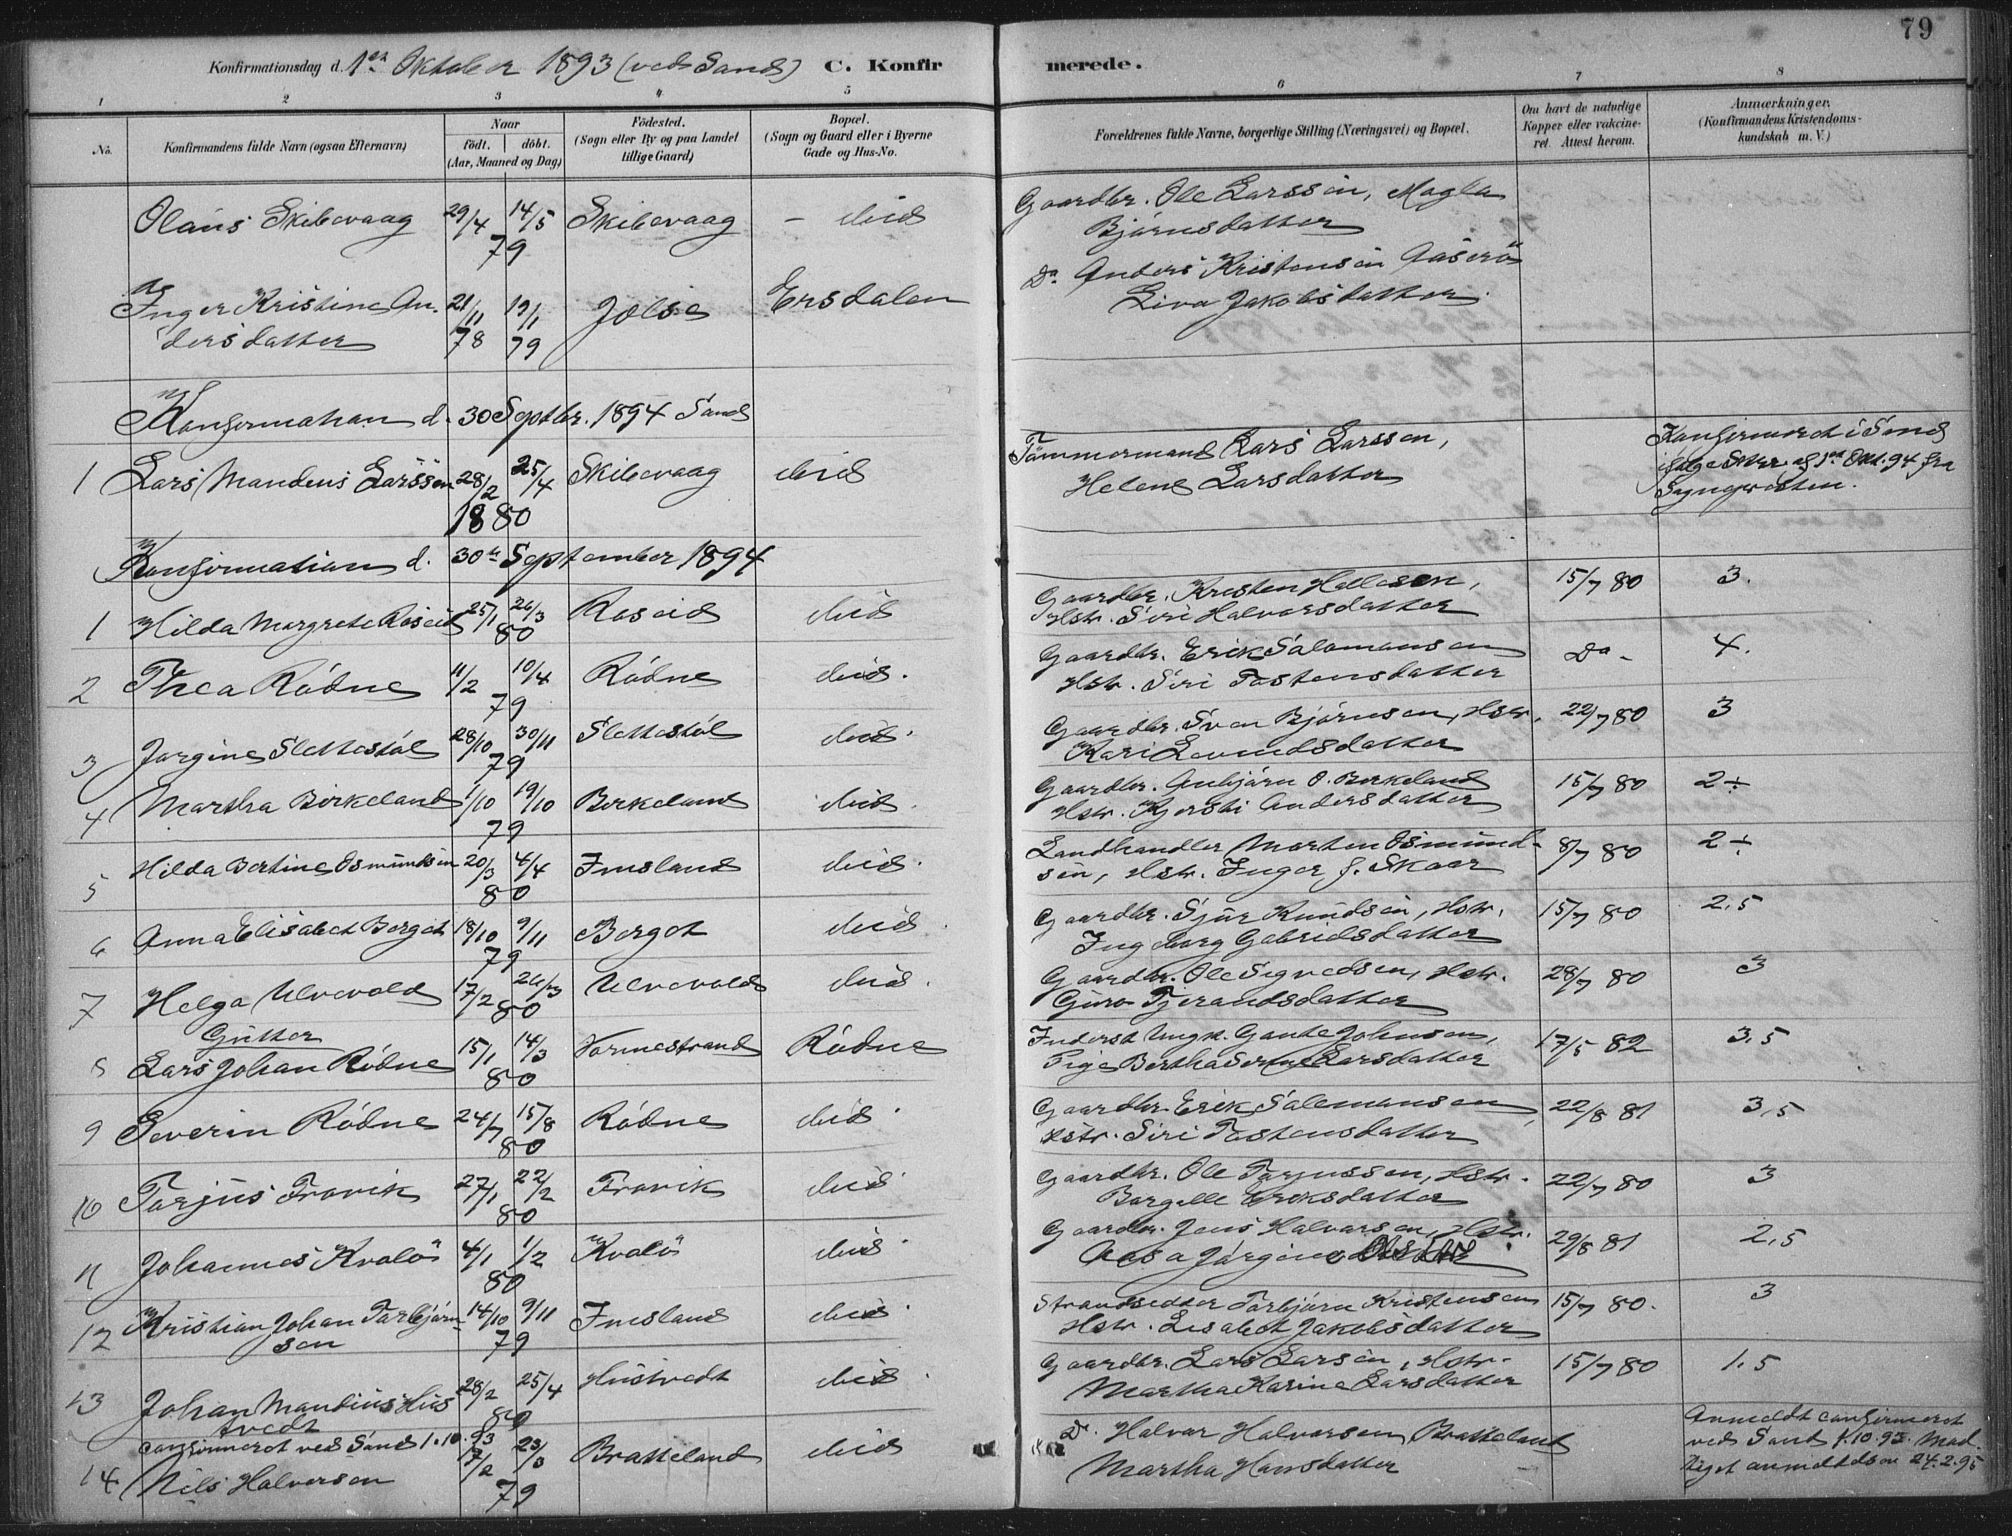 79
Konfirmationsdag d. 1ste Oktober 1893 (ved Sand) C. Konfirmerede.
1 2 3 4 5 6 7 8
No. Konfirmandens fulde Navn (ogsaa Efternavn) Naar født. døbt. (Aar, Maaned og Dag) Fødested. (Sogn eller By og paa Landet tillige Gaard) Bopæl. (Sogn og Gaard eller i Byerne Gade og Hus-No. Forældrenes fulde Navne, borgerlige Stilling (Næringsvei) og Bopæl. Om havt de naturlige Kopper eller vakcineret. Attest herom. Anmærkninger. (Konfirmandens Kristendomskundskab m. V.)
Olaus Skibevaag 29/4 14/5 79 Skibevaag – ibid Gaardbr. Ole Larsson, Magla
Bjørnsdatter
Inger Kristine An- 21/11 78 19/1 79 Jelse Ersdalen Do Anders Kristensen Gåserø
dersdatter Liva Jakobsdatter.
Konfirmation d. 30 Septbr. 1894 Sand
1 Lars Mandius Larssen 28/2 25/4 1880 Skibevaag ibid Tømmermand Lars Larssen, Konfirmeret i Sand
Helene Larsdatter ifølge Skr. af 1ste Okt. 94 fra
Sognepresten.
Konfirmation d. 30te September 1894
1 Hilda Margrete Røseid 25/1 26/3 80 Roseid ibid Gaardbr. Kristen Hellesen, 15/7 80 3.
Hstr. Siri Halvorsdatter
2 Thea Rødne 11/2 10/4 79 Rødne ibid. Gaardbr. Erik Salomonsen Do – 4.
Hstr. Siri Tostensdatter
3 Jorgine Slettestøl 28/10 30/11 79 Slettestøl ibid. Gaardbr. Sven Bjørnsen, Hstr. 22/7 80 3
Kari Eivindsdatter
4 Martha Birkeland 1/10 19/10 79 Berkeland ibid. Gaardbr. Anbjørn O. Berkeland 15/7 80 2÷
Hstr. Kjersti Andersdatter
5 Hilda Bertine Osmundsen 20/3 4/4 80 Imsland ibid. Landhandler Morten Osmund- 8/7 80 2÷
sen, Hstr. Inger f. Skaar
6 Anna Elisabet Berget 18/10 9/11 79 Berget ibid. Gaardbr. Sjur Knudsen, Hstr. 15/7 80 2.5
Ingeborg Gabrielsdatter
7 Helga Ulvevold 17/2 26/3 80 Ulvevold ibid. Gaardbr. Ole Sigvedsen, Hstr. 28/7 80 3
Guro Tjerandsdatter
Gutter
8 Lars Johan Rødne 15/1 14/3 80 Vormestrand Rødne Inderst Ungk. Gaute Johnsen, 17/5 82 3.5
Pige Bertha Serine Larsdatter
9 Severin Rødne 24/7 15/8 80 Rødne ibid. Gaardbr. Erik Salemonsen, 22/8 81 3,5
Hstr. Siri Tostensdatter
10 Torjus Frøvik 27/1 22/2 80 Frøvik ibid. Gaardbr. Ole Torjussen, Hstr. 22/7 80 3
Borgille Eriksdatter
11 Johannes Kvalø 4/1 1/2 80 Kvalø ibid. Gaardbr. Jens Halvorsen, Hstr. 29/8 81 2,5
Aasa Jørgine
12 Kristian Johan Torbjørn- 14/10 9/11 79 Imsland ibid. Strandsidder Torbjørn Kristensen 15/7 80. 3
sen Hstr. Lisabet Jakobsdatter
13 Johan Mandius Hus- 28/2 25/4 80 Hustvedt ibid. Gaardbr. Lars Larsen, Hstr. 15/7 80 1.5
tvedt Martha Karine Larsdatter
confirmeret ved Sand 1.10.93 Anmeldt confirmeret
14 Nils Halvorsen 17/2 23/3 79 Bratteland ibid Do. Halvor Halvorsen Bratteland ved Sand 1.10.93. Mod-
Martha Hansdatter taget anmeldelsen 24.2.95